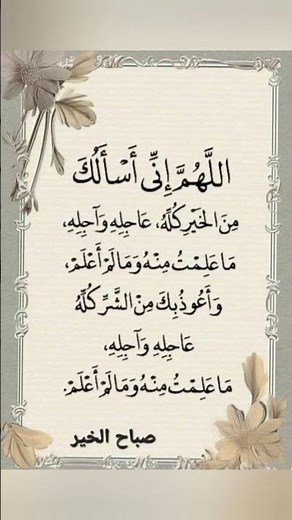 اللَّهُمَّ إِنِّي أَسْأَلُكَ
مِنَ الْخَيْرِ كُلِّهِ، عَاجِلِهِ وَآجِلِهِ،
مَا عَلِمْتُ مِنْهُ وَمَا لَمْ أَعْلَمْ،
وَأَعُوذُ بِكَ مِنَ الشَّرِّ كُلِّهِ
عَاجِلِهِ وَآجِلِهِ،
مَا عَلِمْتُ مِنْهُ وَمَا لَمْ أَعْلَمْ.
صباح الخير